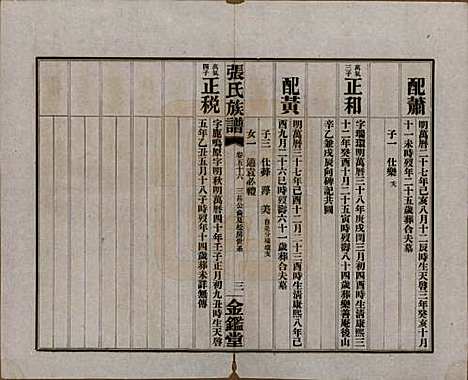 配蕭
明萬曆二十七年己亥八月十二辰時生天啓三年癸亥十月
十一未時歿年二十五歲葬合夫墓
子一 仕樂
萬氣三子
正和
字瑞環明萬曆三十八年庚戌閏三月初四子時生清康熙三
十二年癸酉十月二十五寅時歿壽八十四歲葬樂善庵後山
辛乙兼戌辰向碑記共圖
配黃
明萬曆三十七年己酉十二月二十三酉時生清康熙八年己
酉九月二十六巳時歿壽六十一歲葬合夫墓
子三 仕彝 淳 美
女一 適袁必禮
張氏族譜
卷五十六
三
金鑑堂
萬氣四子
正税
字鹿鳴原字明秋明萬曆四十年壬子正月初九丑時生天啓
五年乙丑五月十八子時歿年十四歲葬未詳無傳